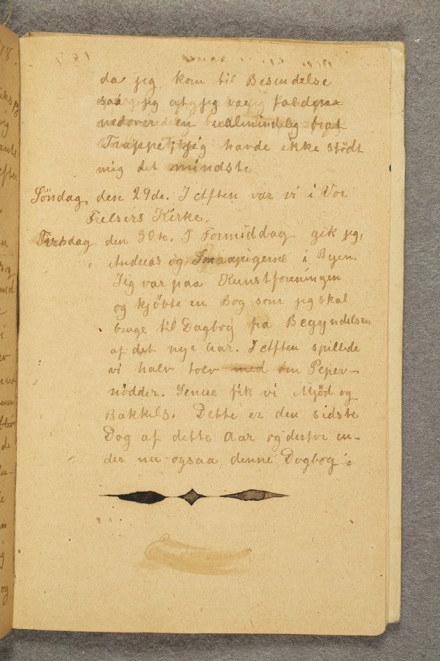 da jeg kom til Besindelse
saa jeg at jeg var falden
nedover en ualmindelig brat
Trappe, jeg havde ikke stödt
mig det mindste
Söndag den 29de. I Aften var vi i Vor
Frelsers Kirke.
den 30te. I Formiddag gik jeg,
Andreas og Smaapigerne i Byen.
Jeg var paa Kunstforeningen
og kjøbte en Bog som jeg skal
bruge til Dagbog fra Begyndelsen
af det nye Aar. I Aften spillede
vi halv tolv med om Peper-
nödder. Senere fik vi Mjöd og
Bakkels. Dette er den sidste
Dag af dette Aar og derfor en-
der nu ogsaa denne Dagbog.